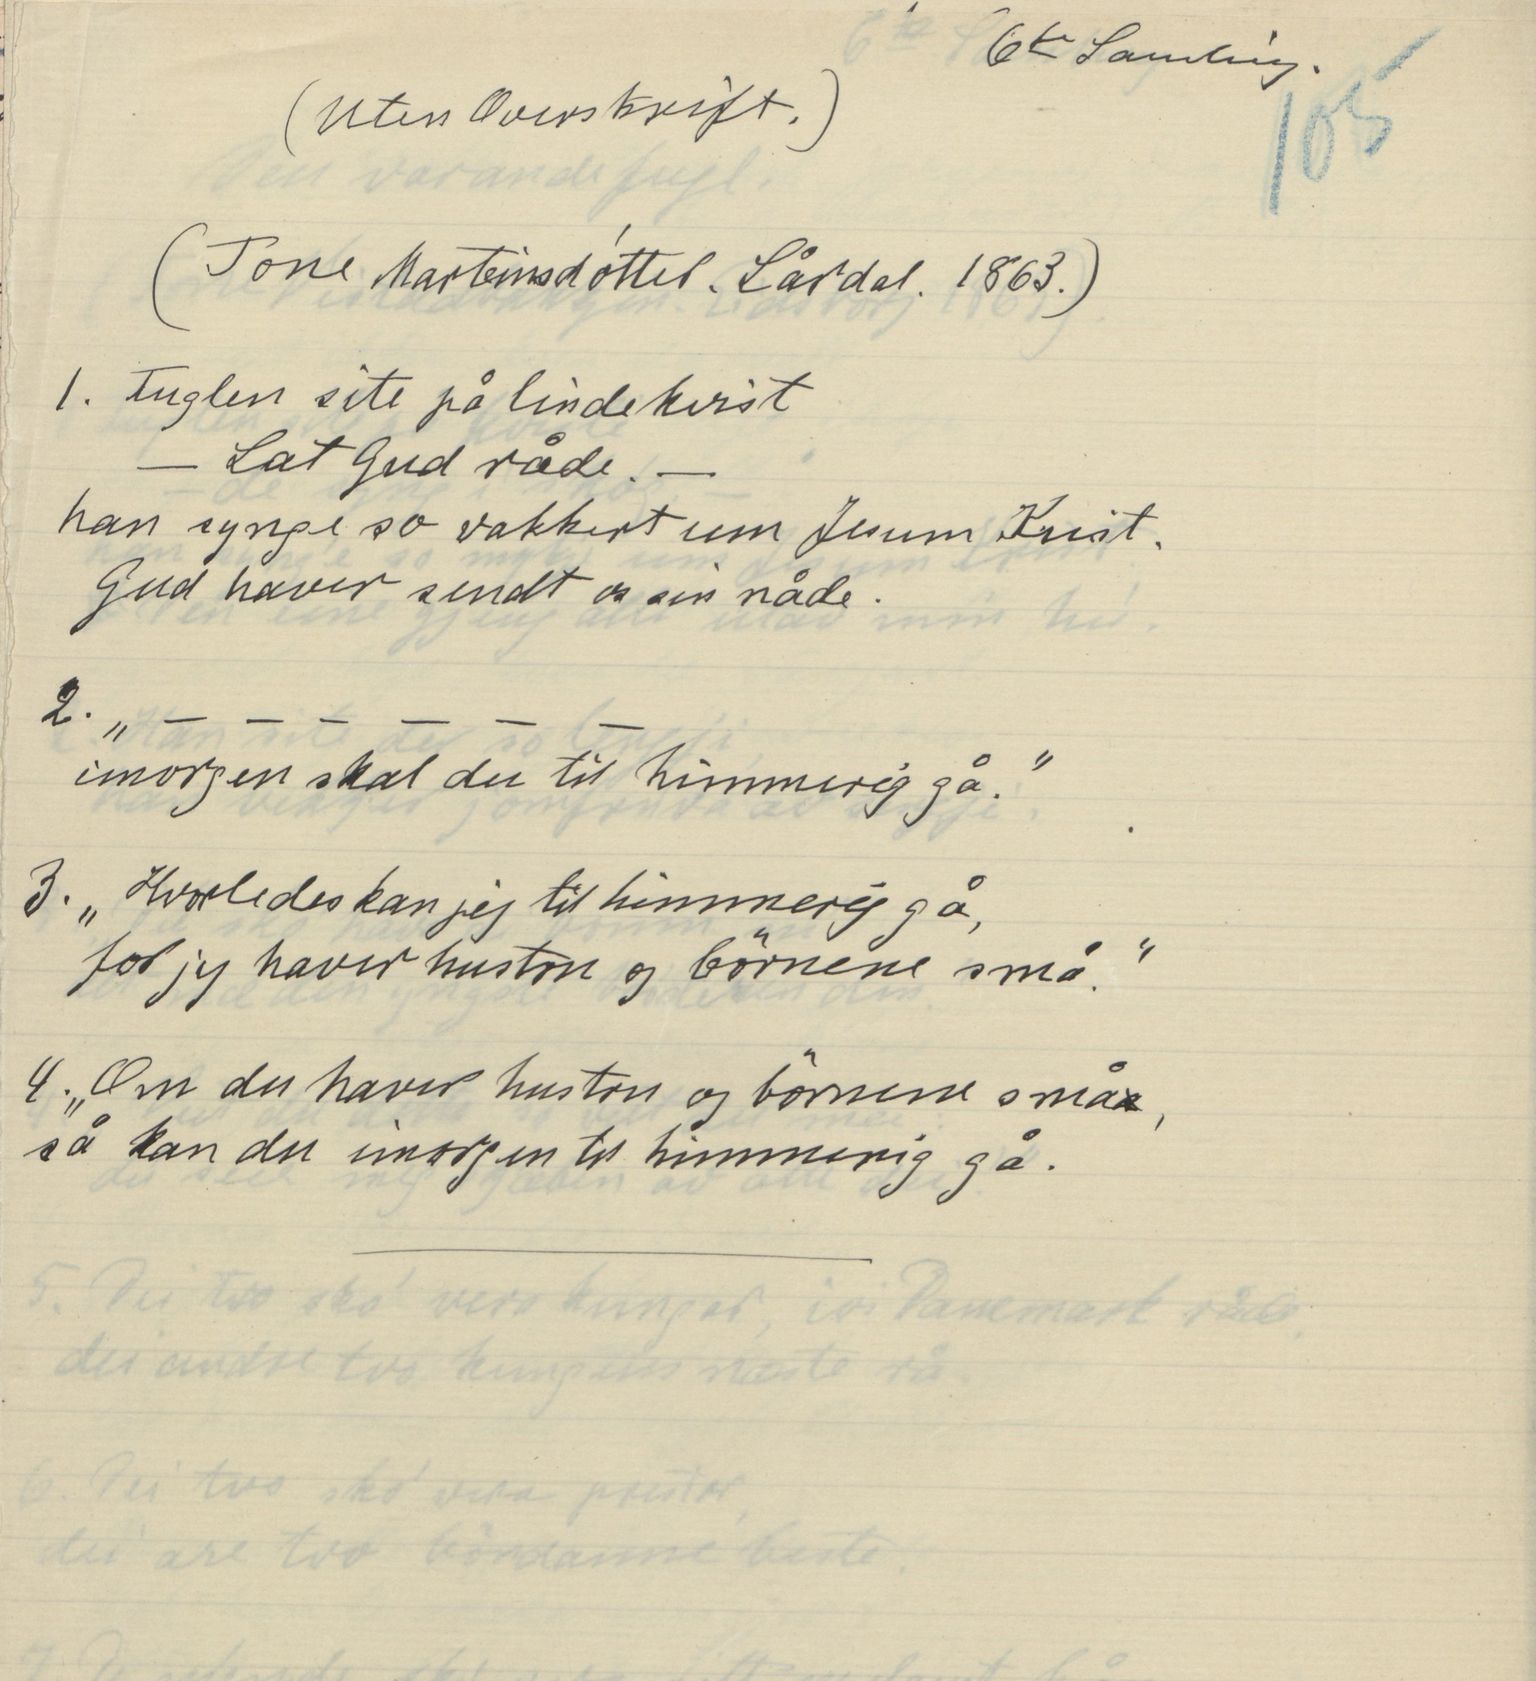 6te Samling.
105
(Uten Overskrift.)
(Tone Marteinsdótter. Lårdal. 1863.)
1. Fuglen site på lindekvist
— Lat Gud råde. —
han synge so vakkert um Jesum Krist.
Gud haver sendt os sin nåde.
2. „ — — — — — —
imorgen skal du til himmerig gå."
3. „Hvorledes kan jeg til himmerig gå,
for jeg haver hustru og börnene små."
4. „Om du haver hustru og börnene små,
så kan du imorgen til himmerig gå.